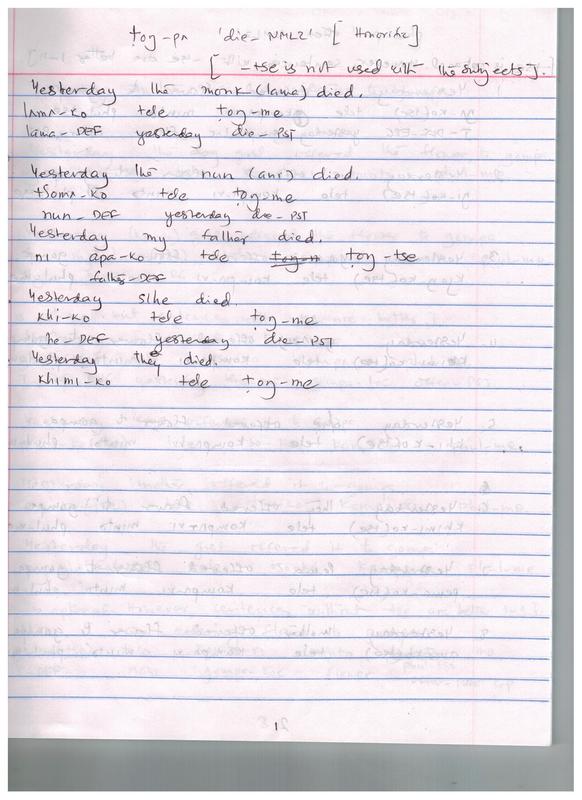 toŋ-pʌ 'die-NMLZ' [Honorific]
[-tse is not used with the subjects].
Yesterday the monk (lama) died.
lamʌ-ko tele toŋ-me
lama-DEF yesterday die-PST
Yesterday the nun (ani) died.
tsomʌ-ko tele toŋ-me
nun-DEF yesterday die-PST
Yesterday my father died.
ni apa-ko tele toŋ-tse
father-DEF
Yesterday s/he died.
khi-ko tele toŋ-me
he-DEF yesterday die-PST
Yesterday they died.
khimi-ko tele toŋ-me